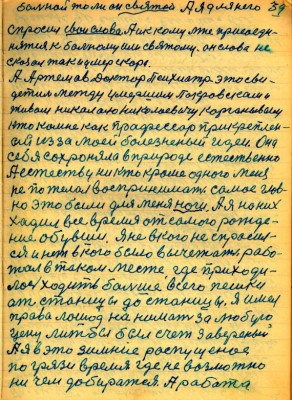 больной то ли он святой А я для него 39
спросил свои слова. А и к кому мне присоеди-
нятся к больному им святому. он слова не
сказал так и умер скоро.
А Артемьав доктор Психиатр. это сви-
детель между умершим Покровским и
живым николаю николаевичу корганавым
что ко мне как прафессар прикреплен-
ай из за моей болезненый идеи. Она
себя сохроняла в природе естественно
А естеству никто кроме одного меня
не пожелал воспринимать самое глов-
но это были для меня ноги. А я на них
хадил все время от самого рожде-
ние обувши. Я не в кого не спросил-
ся и нет в кого было вынежать рабо-
тал в таком месте, где приходи-
лось ходить больше всего пешки
от станицы до станицы. Я имел
права лошод на нимат за любую
цену лиш бы был счет завереный
А я в это зимние распущеное
по грязи время где не возможно
ни чем добиратся. А работа